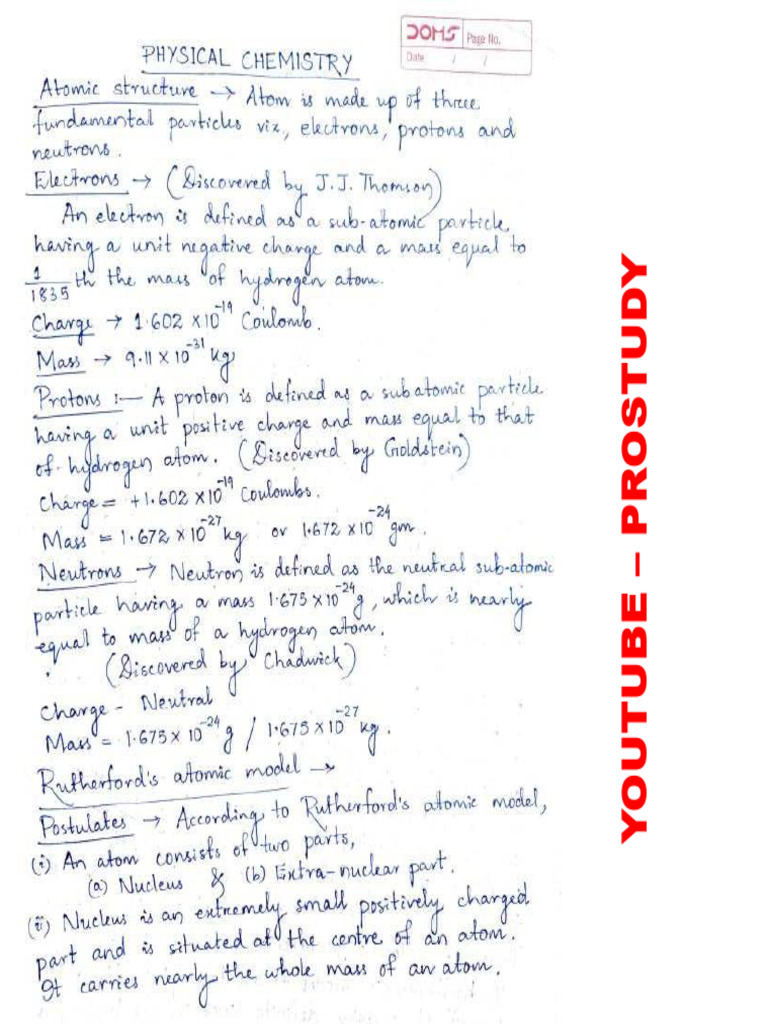 DOMS Page No.
Date / /
PHYSICAL CHEMISTRY
Atomic structure → Atom is made up of three
fundamental particles viz, electrons, protons and
neutrons.
Electrons → (Discovered by J.J. Thomson)
An electron is defined as a sub-atomic particle
having a unit negative charge and a mass equal to
1/1835 th the mass of hydrogen atom.
Charge → 1.602 × 10⁻¹⁹ Coulomb.
Mass → 9.11 × 10⁻³¹ kg
Protons :— A proton is defined as a subatomic particle
having a unit positive charge and mass equal to that
of hydrogen atom. (Discovered by Goldstein)
Charge = +1.602 × 10⁻¹⁹ Coulombs.
Mass = 1.672 × 10⁻²⁷ kg or 1.672 × 10⁻²⁴ gm.
Neutrons → Neutron is defined as the neutral sub-atomic
particle having a mass 1.675 × 10⁻²⁴ g, which is nearly
equal to mass of a hydrogen atom.
(Discovered by Chadwick)
Charge - Neutral
Mass = 1.675 × 10⁻²⁴ g / 1.675 × 10⁻²⁷ kg.
Rutherford's atomic model →
Postulates → According to Rutherford's atomic model,
(i) An atom consists of two parts,
(a) Nucleus & (b) Extra-nuclear part.
(ii) Nucleus is an extremely small positively charged
part and is situated at the centre of an atom.
It carries nearly the whole mass of an atom.
YOUTUBE – PROSTUDY